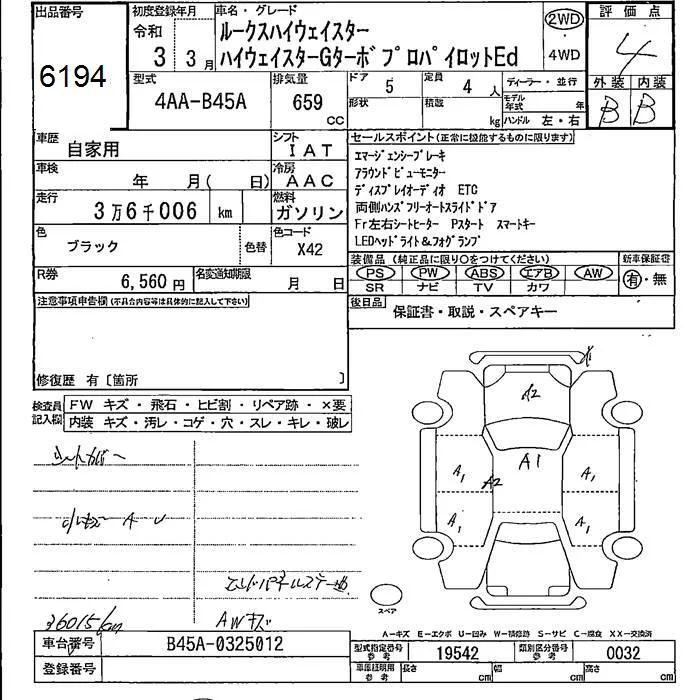 出品番号
6194
初度登録年月
令和
3 3月
車名・グレード
ルークスハイウェイスター
ハイウェイスターGターボ プロパイロットEd
2WD
4WD
評価点
4
型式
4AA-B45A
排気量
659
CC
ドア 5
定員 4 人
形状
積載 kg
ディーラー・並行
モデル年式 年
ハンドル 左・右
外装 内装
B B
車歴
自家用
シフト
IAT
車検
年 月( 日)
冷房
AAC
走行
3万6千006 km
燃料
ガソリン
色
ブラック
色替
色コード
X42
R券
6,560円
名変通知期限
月 日
セールスポイント(正常に機能するものに限ります)
エマージェンシーブレーキ
アラウンドビューモニター
ディスプレイオーディオ ETC
両側ハンズフリーオートスライドドア
Fr左右シートヒーター Pスタート スマートキー
LEDヘッドライト&フォグランプ
装備品(純正品に限り○をつけてください)
PS PW ABS エアB AW
SR ナビ TV カワ
新車保証書
有・無
後日品
保証書・取説・スペアキー
注意事項申告欄(不具合内容等は具体的に記入して下さい)
修復歴 有〔箇所 〕
検査員記入欄
FW キズ・飛石・ヒビ割・リペア跡・×要
内装 キズ・汚レ・コゲ・穴・スレ・キレ・破レ
シートカバー
エンドパネルステー曲
36015km
AWキズ
A2
A1
A2
A1
A1
A1
A1
スペア
A-キズ E-エクボ U-凹み W-補修跡 S-サビ C-腐食 XX-交換済
車台番号
B45A-0325012
登録番号
型式指定番号 参考
19542
類別区分番号 参考
0032
車庫証明用 参考
長さ cm
幅 cm
高さ cm